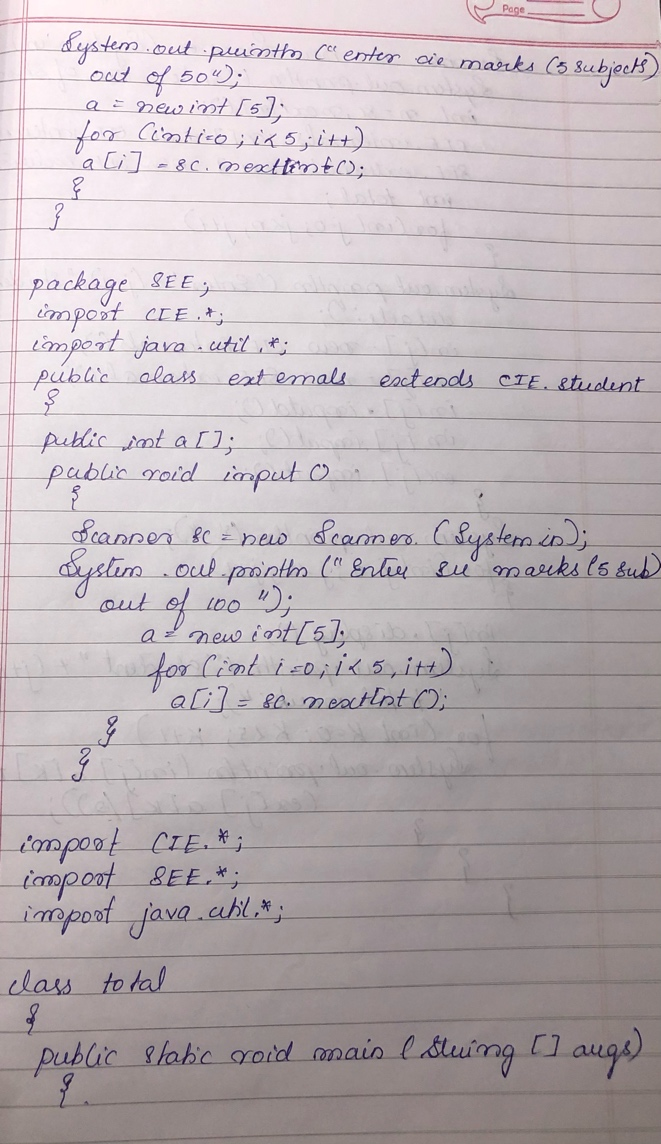 Page
System.out.println ("enter cie marks (5 subjects)
out of 50");
a = new int [5];
for (int i=0 ; i<5 ; i++)
a[i] = sc.nextInt();
}
}
package SEE;
import CIE.*;
import java.util.*;
public class externals extends CIE.student
{
public int a[];
public void input()
{
Scanner sc = new Scanner (System.in);
System.out.println ("Enter see marks (5 sub)
out of 100");
a = new int[5];
for (int i=0; i<5, i++)
a[i] = sc.nextInt();
}
}
import CIE.*;
import SEE.*;
import java.util.*;
class total
{
public static void main (String [] args)
{.